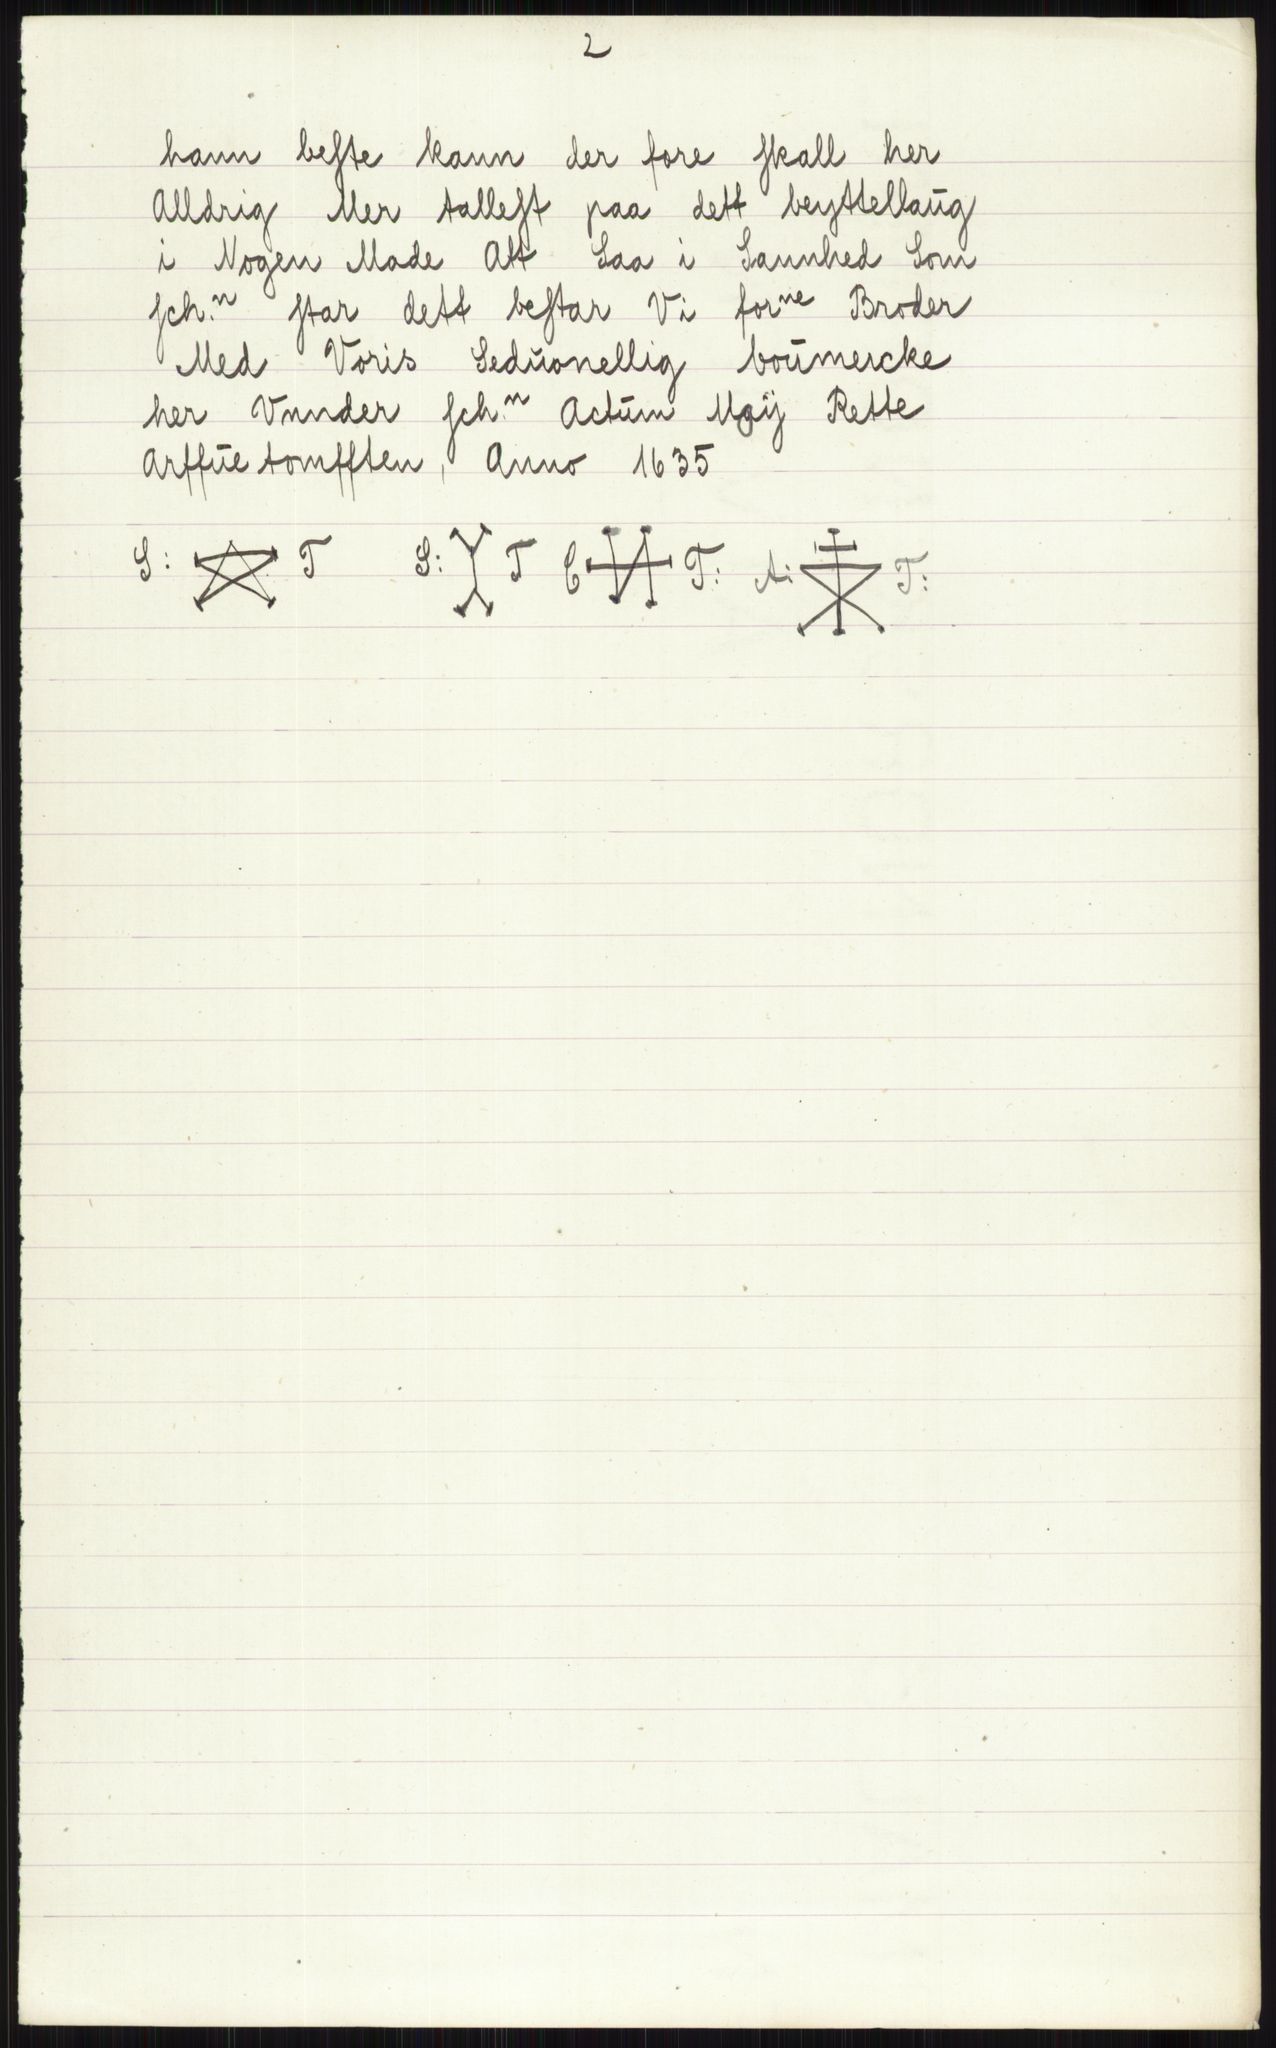 2
hann beste kann der fore skall her
Alldrig Mer tallest paa dett beyttellaug
i Nogen Made Att Saa i Sannhed Som
sch:n star dett bestar Vi forne Broder
Med Voris Seduonellig boumercke
her Vnnder sch:n Actum Maÿ Rette
Arffue tomfften, Anno 1635
S: T S: T C T: A: T: